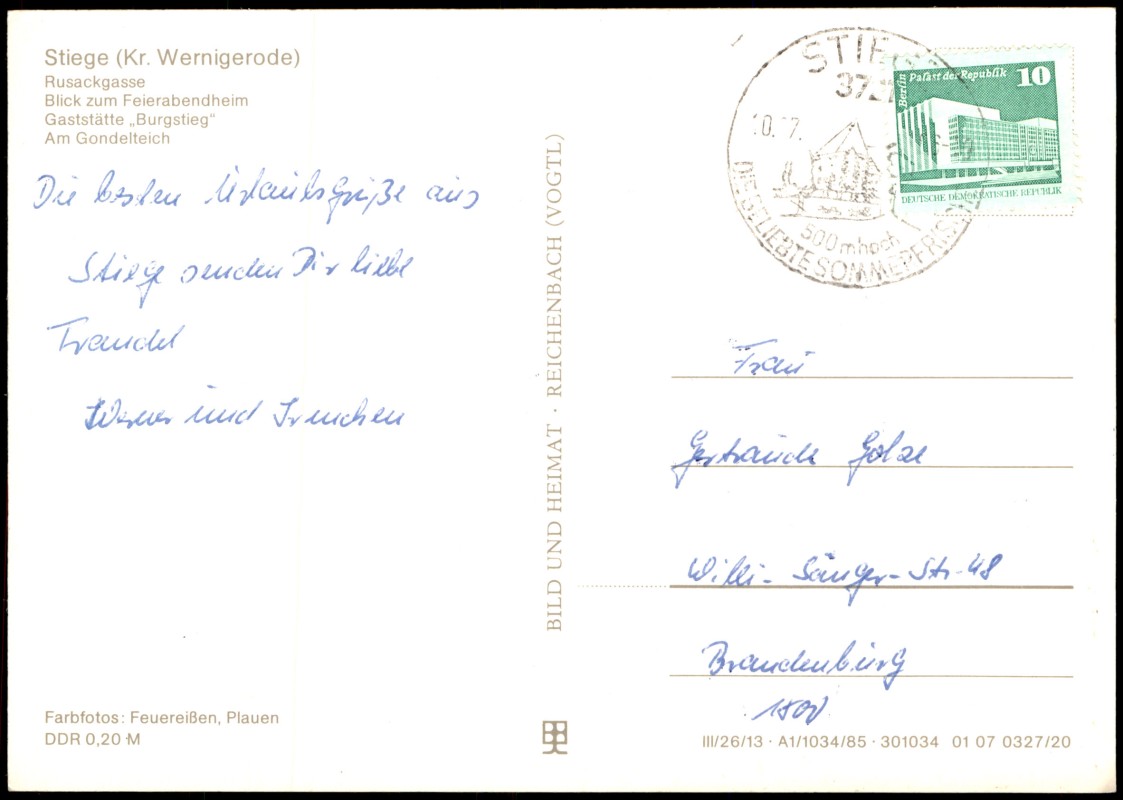 Stiege (Kr. Wernigerode)
Rusackgasse
Blick zum Feierabendheim
Gaststätte „Burgstieg“
Am Gondelteich
Die besten Urlaubsgrüße aus
Stiege senden Dir liebe
Traudel
Werner und Irmchen
Farbfotos: Feuereißen, Plauen
DDR 0,20 M
BILD UND HEIMAT · REICHENBACH (VOGTL)
10. 7.
500 m hoch
DIE BELIEBTE SOMMERFRISCHE
Berlin Palast der Republik 10
DEUTSCHE DEMOKRATISCHE REPUBLIK
Frau
Gertraude Golze
Willi-Sänger-Str. 48
Brandenburg
1800
III/26/13 · A1/1034/85 · 301034 01 07 0327/20